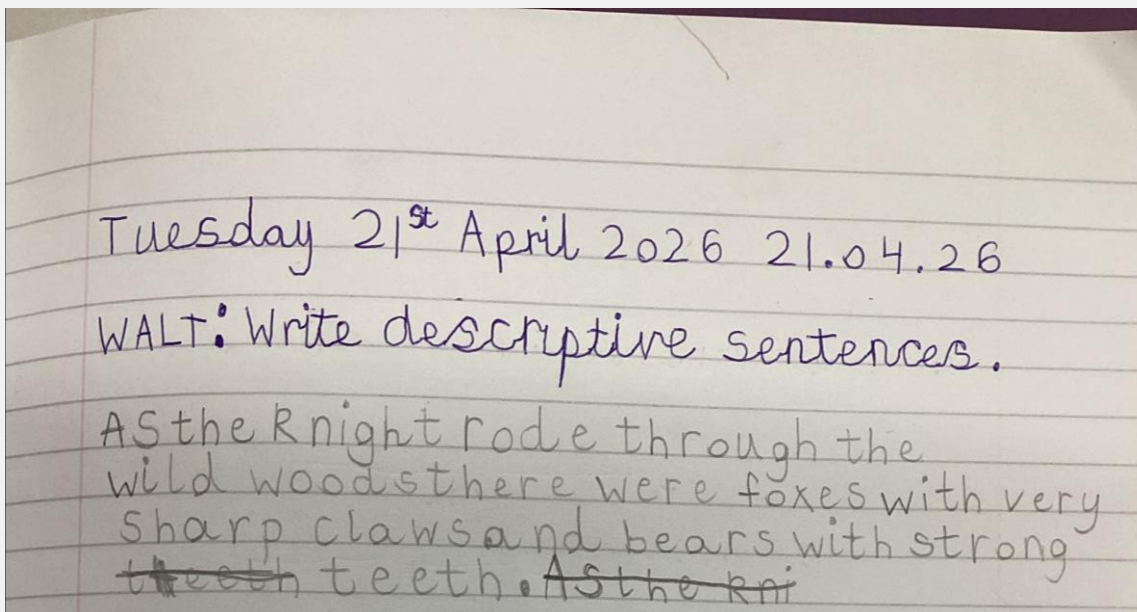 Tuesday 21st April 2026 21.04.26
WALT: Write descriptive sentences.
AS the Knight rode through the
wild woods there were foxes with very
sharp claws and bears with strong
theeth teeth. AS the kni